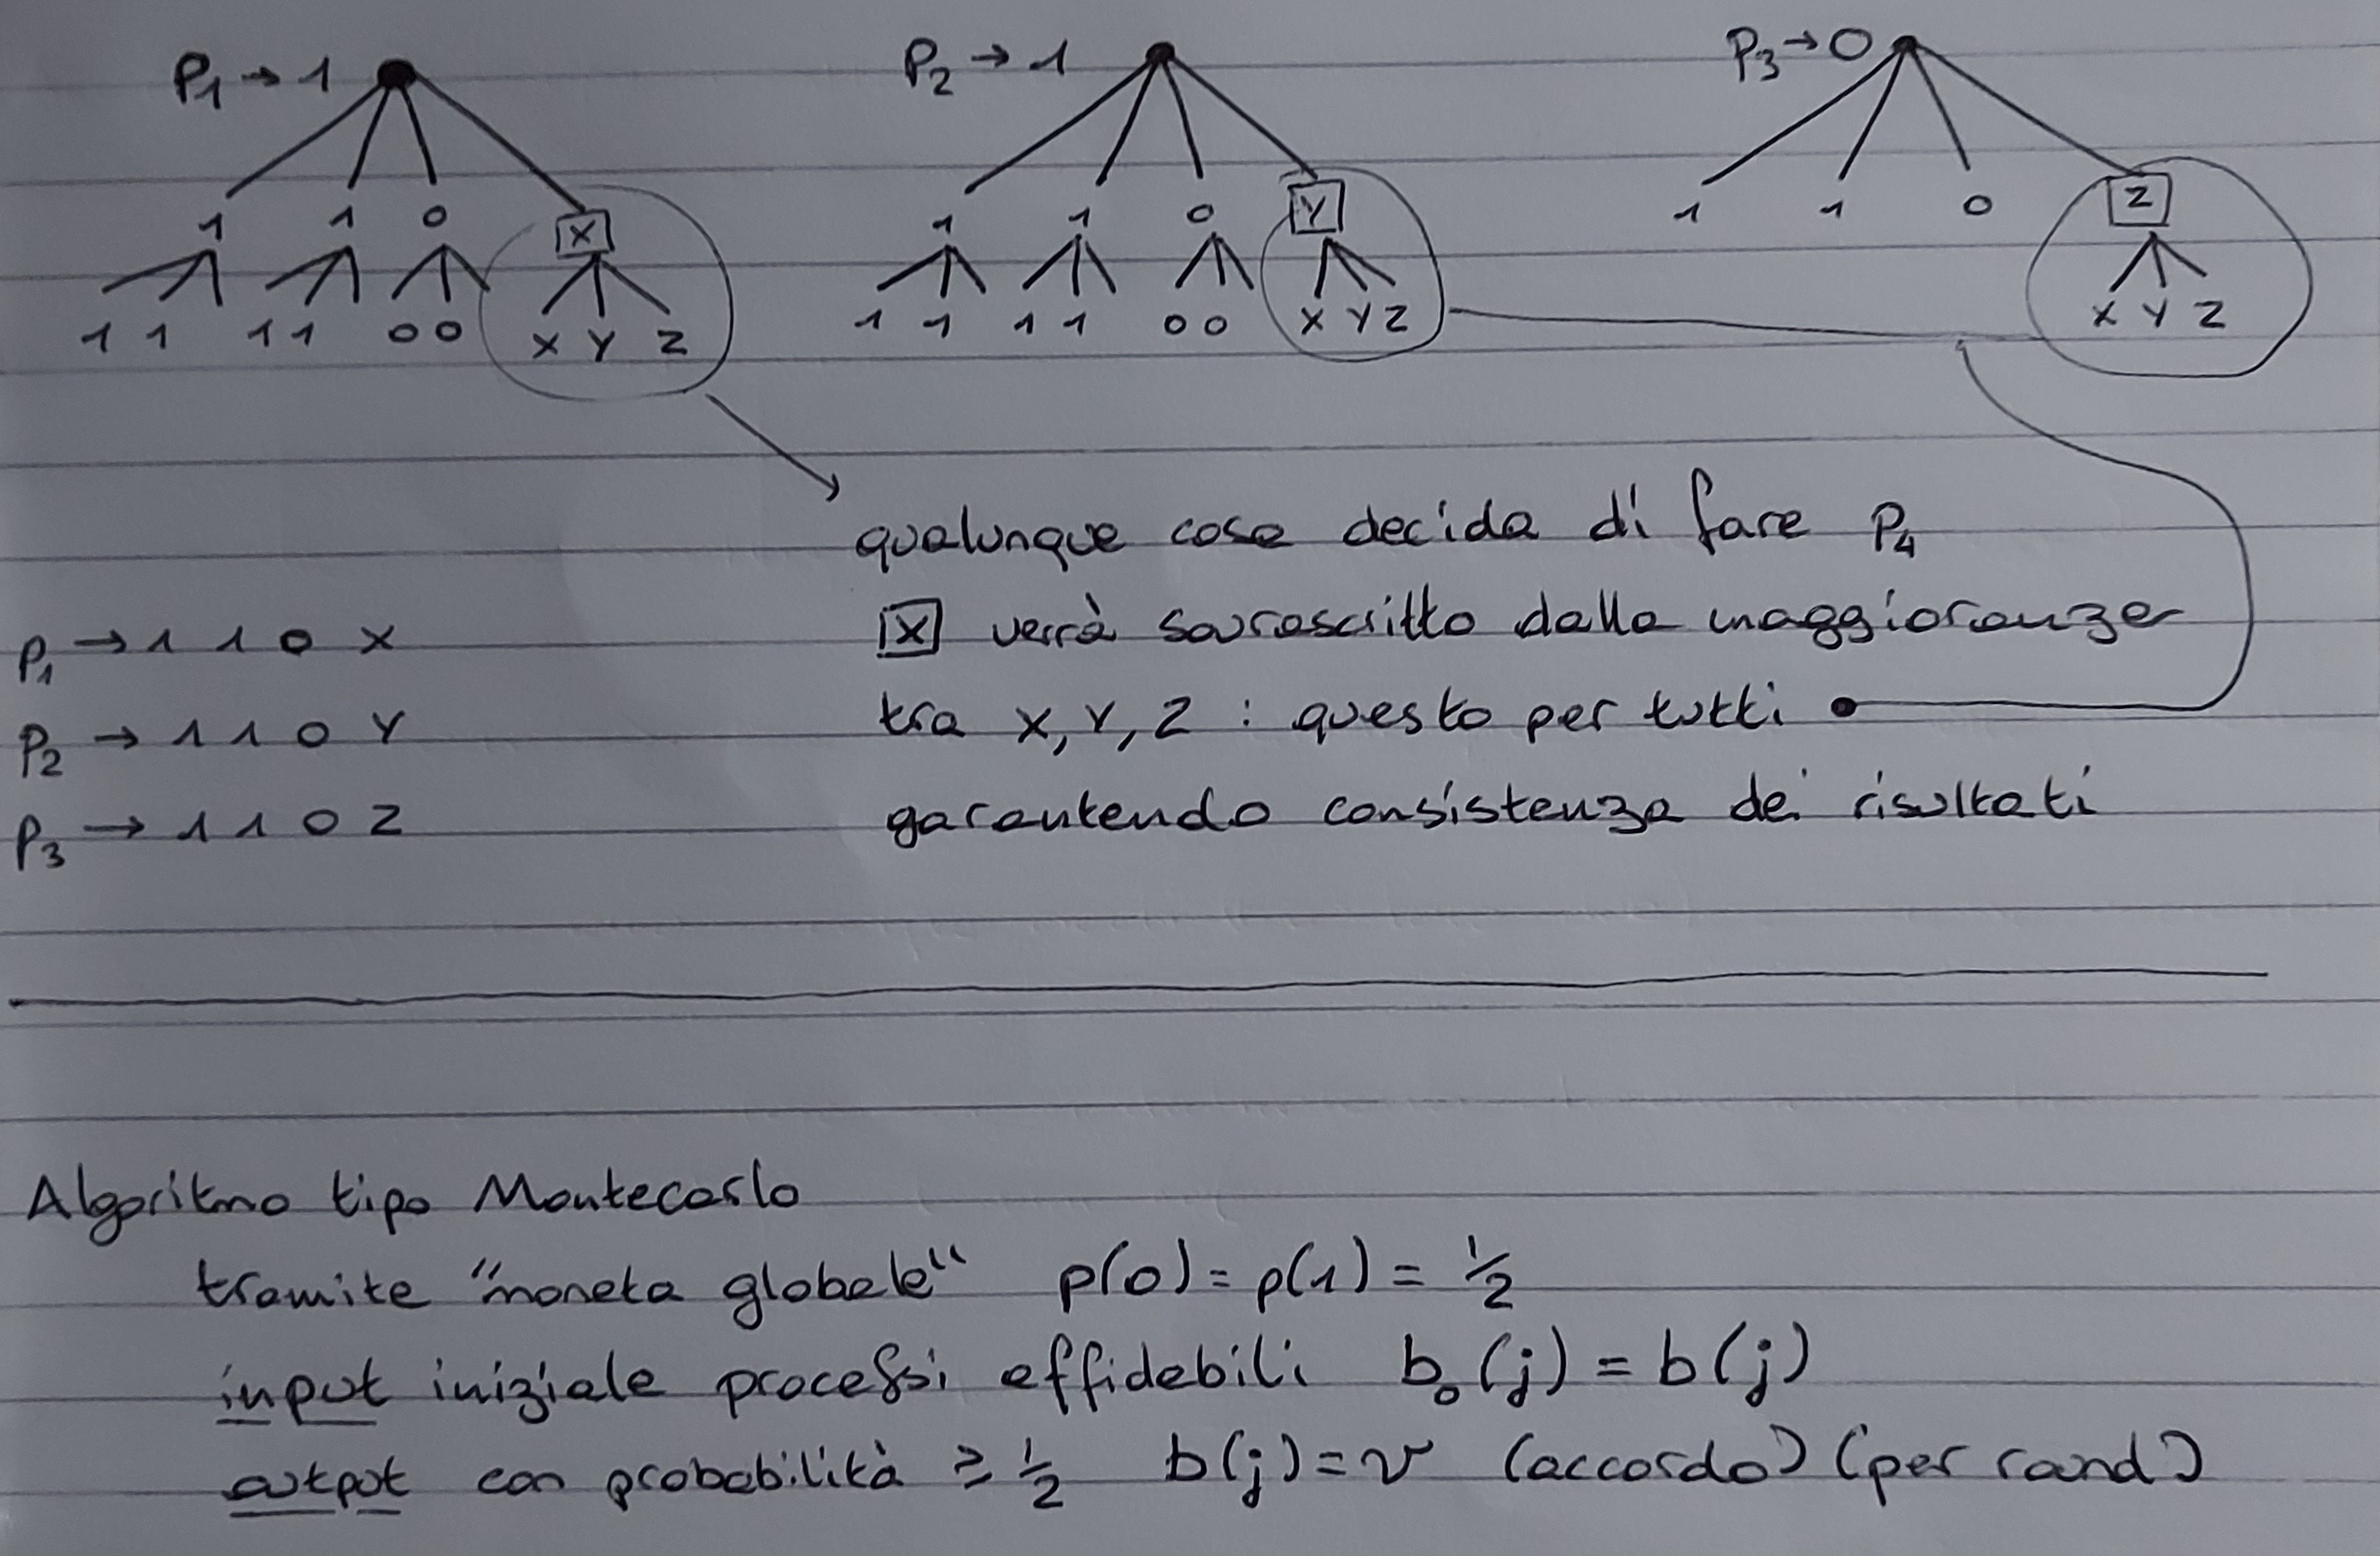 P₁ → 1
P₂ → 1
P₃ → 0
1 1 0 X
1 1 0 Y
1 1 0 Z
1 1 1 1 0 0 X Y Z
1 1 1 1 0 0 X Y Z
X Y Z
qualunque cosa decida di fare P₄
X verrà sovrascritto dalla maggioranza
tra X, Y, Z : questo per tutti
garantendo consistenza dei risultati
P₁ → 1 1 0 X
P₂ → 1 1 0 Y
P₃ → 1 1 0 Z
Algoritmo tipo Montecarlo
tramite "moneta globale" p(0) = p(1) = 1/2
input iniziale processi affidabili b₀(j) = b(j)
output con probabilità ≥ 1/2 b(j) = v (accordo) (per rand)